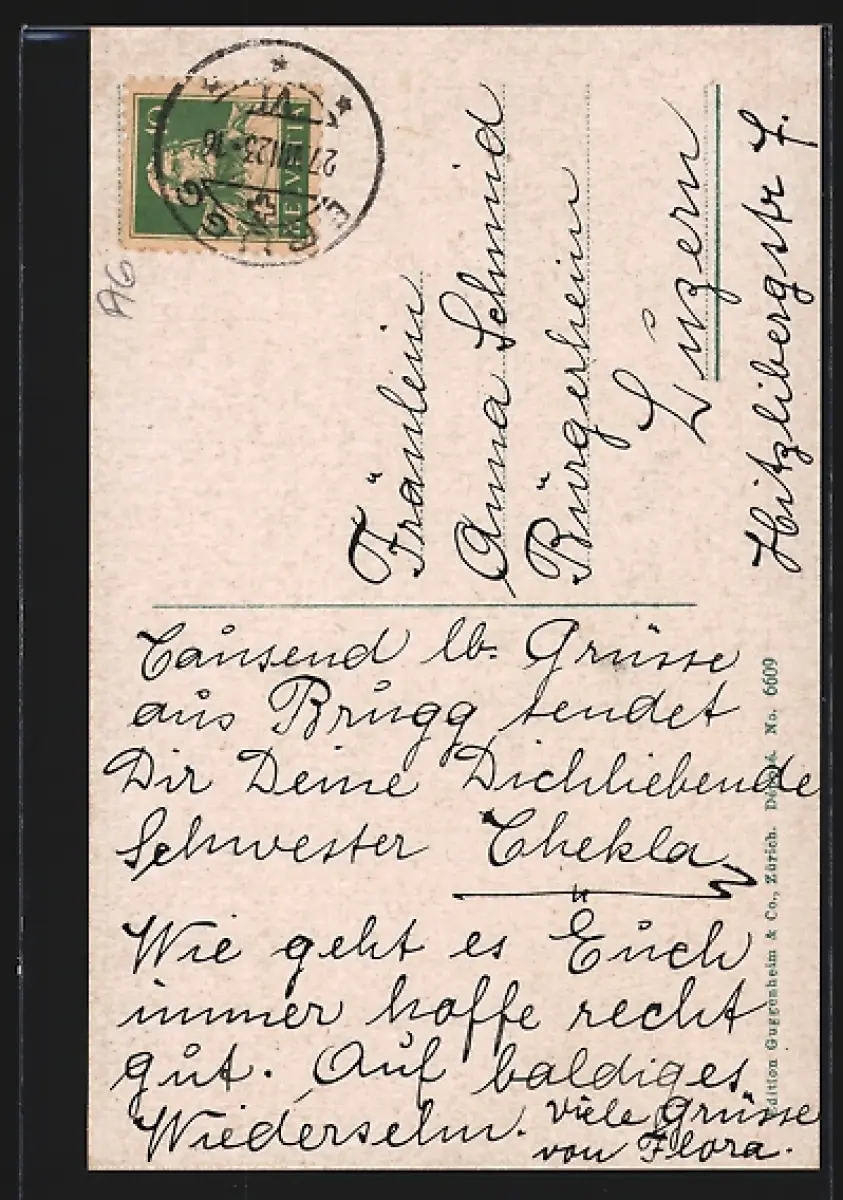 10
HELVETIA
BRUGG
VI
27.VIII.23.10
A6
Fräulein
Anna Schmid
Bürgerheim
Luzern
Hitzlibergstr 7.
Tausend lb. Grüsse
aus Brugg sendet
Dir Deine Dichliebende
Schwester Thekla
Wie geht es Euch
immer hoffe recht
gut. Auf baldiges
Wiedersehn. viele Grüsse
von Flora.
Edition Guggenheim & Co., Zürich. Déposé. No. 6609